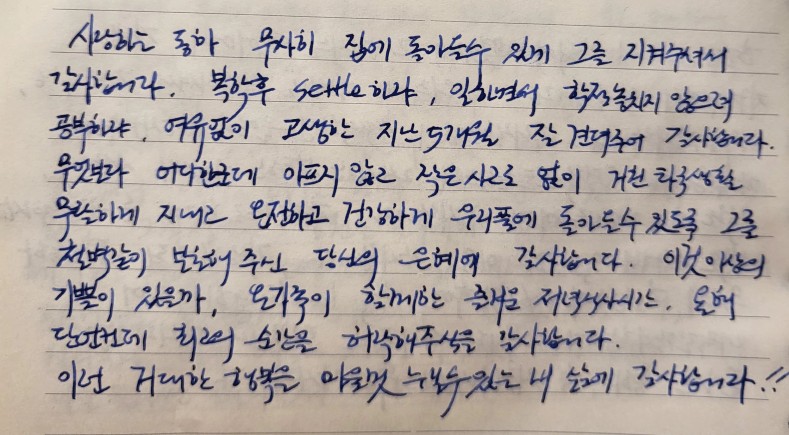 사랑하는 동하 무사히 집에 돌아올수 있게 그를 지켜주셔서
감사합니다. 복학후 settle하랴, 일하면서 학점놓치지 않으려
공부하랴, 여유없이 고생한 지난 5개월 잘 견뎌주어 감사합니다.
무엇보다 어디한군데 아프지 않고 작은 사고로 없이 거친 타국생활
무탈하게 지내고 온전하고 건강하게 우리품에 돌아올수 있도록 그를
철벽같이 보호해 주신 당신의 은혜에 감사합니다. 이것이상의
기쁨이 있을까, 온가족이 함께한 즐거운 저녁식사시간, 올해
단연컨데 최고의 순간을 허락해주심을 감사합니다.
이런 거대한 행복을 마음껏 누릴수있는 내 감사합니다!!